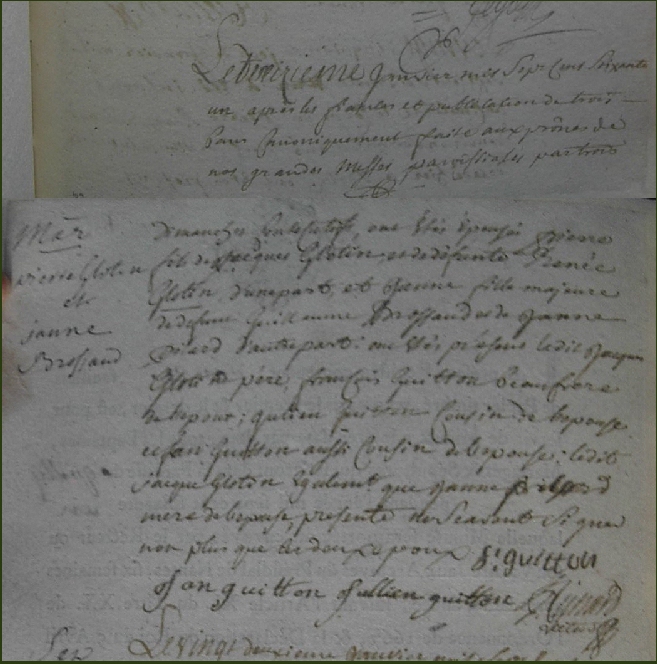 Le treizieme janvier mil Sept Cent Soixante
un, après les fiancailles et publication de trois
bans Canoniquement faite aux prônes de
nos grandes Messes paroissiales par trois
Mar
pierre Glotin
et
janne
Brossaud
dimanches Consécutifs, ont étés épousés pierre
fils de jacques Glotin, et de défunte Renée
Glotin d'une part, et Janne fille majeure
de defunt Guillaume Brossaud et de Janne
d'autre part: ont étés présens ledit Jacques
Glotin père, françois Guitton beaufrere
de lepoux; julien Guitton Cousin de lepouse
et jan Guitton aussi Cousin de lepouse; ledit
jacque Glotin Egalemt que Janne
mere de lepouse, presente ne Scavent Signer
non plus que les deux epoux f. guitton
jan guitton jullien guitton
Le vingt deuxieme janvier mil Sept